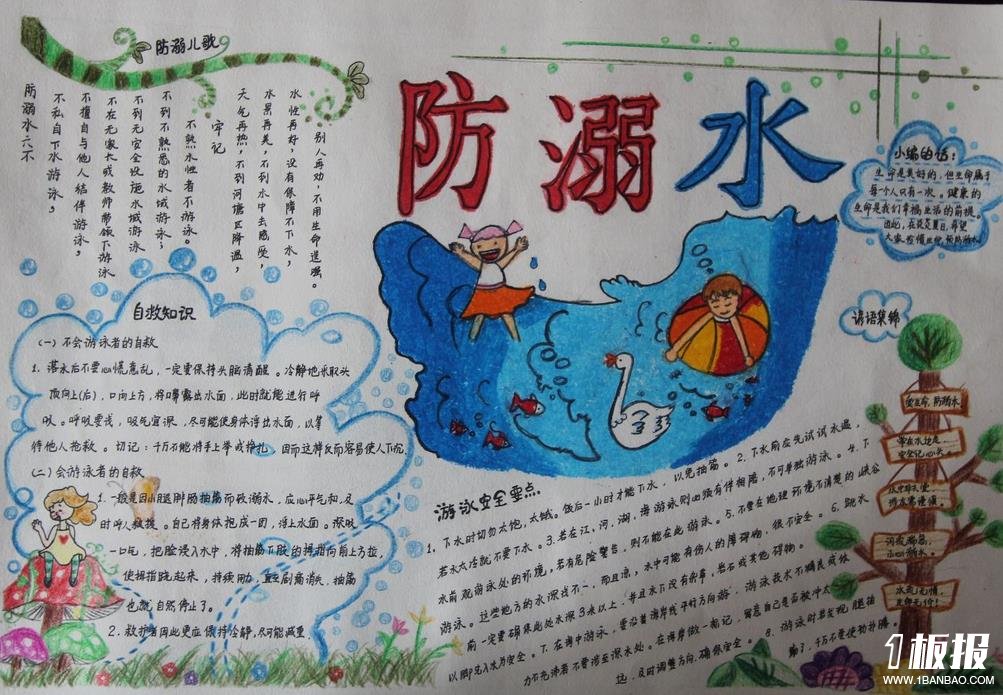 防溺儿歌
防溺水
防溺水六不
不私自下水游泳；
不擅自与他人结伴游泳；
不在无家长或教师带领下游泳
不到无安全设施水域游泳
不到不熟悉的水域游泳；
不熟水性者不游泳。
牢记
天气再热，不到河塘区降温；
水景再美，不到水中去感受，
水性再好，没有保障不下水，
别人再劝，不用生命逞强。
小编的话：
生命是美好的，但生命属于
每个人只有一次。健康的
生命是我们幸福生活的前提。
因此，在炎炎夏日，希望
大家
自救知识
(一) 不会游泳者的自救
1. 落水后不要心慌意乱，一定要保持头脑清醒。冷静地采取头
顶向上(后)，口向上方，将嘴露出水面，此时就能进行呼
吸。呼吸要浅，吸气宜深，尽可能使身体浮出水面，以等
待他人抢救。切记：千万不能将手上举或挣扎，因而这样反而容易使人下沉
(二) 会游泳者的自救
1. 一般是因小腿腓肠抽筋而致溺水，应心平气和，及
时呼人救援。自己将身体抱成一团，浮上水面。深吸
一口气，把脸浸入水中，将抽筋下肢的拇指向前上方拉，
使拇指跷起来，持续用力，直至剧痛消失，抽筋
也就自然停止了。
2. 救护者因此更应保持冷静，尽可能减重
游泳安全要点
1. 下水时切勿太饱、太饿。饭后一小时才能下水，以免抽筋。2. 下水前应先试试水温，
若水太冷就不要下水。3. 若在江、河、湖、海游泳则必须有伴相陪，不可单独游泳。4. 下
水前观游泳处的环境，若有危险警告，则不能在此游泳。5. 不要在地理环境不清楚的峡谷
游泳。这些地方的水深浅不一，而且凉，水中可能有伤人的障碍物，很不安全。6. 跳水
前一定要确保此处水深3米以上，并且水下没有杂草、岩石或其他碍物。
以脚先入水为安全。7. 在海中游泳，要沿着海岸线平行方向游，游泳技术不精良或体
力不充沛者不要涉至深水处。在海岸做一标记，留意自己是否被冲太
远，及时调整方向，确保安全。8. 游泳时若发现腿抽
筋了，千万不要
谚语集锦
防溺水。
安全记心头。
水火无情，
生命无价！
1板报
WWW.1BANBAO.COM